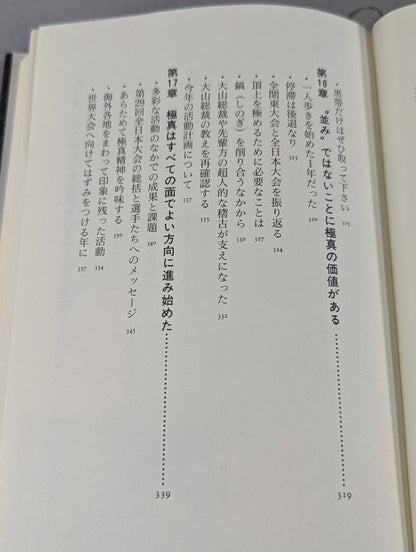 ・黒帯だけはぜひ取って下さい 315
第16章 “並み”ではないことに極真の価値がある………… 319
・一人歩きを始めた1年だった 320
・停滞は後退なり 323
・全関東大会と全日本大会を振り返る 324
・頂上を極めるために必要なことは 327
・鎬（しのぎ）を削り合うなかから 330
・大山総裁や先輩方の超人的な稽古が支えになった 332
・大山総裁の教えを再確認する 335
・今年の活動計画について 337
第17章 極真はすべての面でよい方向に進み始めた………… 339
・多彩な活動のなかでの成果と課題 340
・第29回全日本大会の総括と選手たちへのメッセージ 345
・あらためて極真精神を吟味する 350
・海外各地をまわって印象に残った活動 354
・世界大会へ向けてはずみをつける年に 357